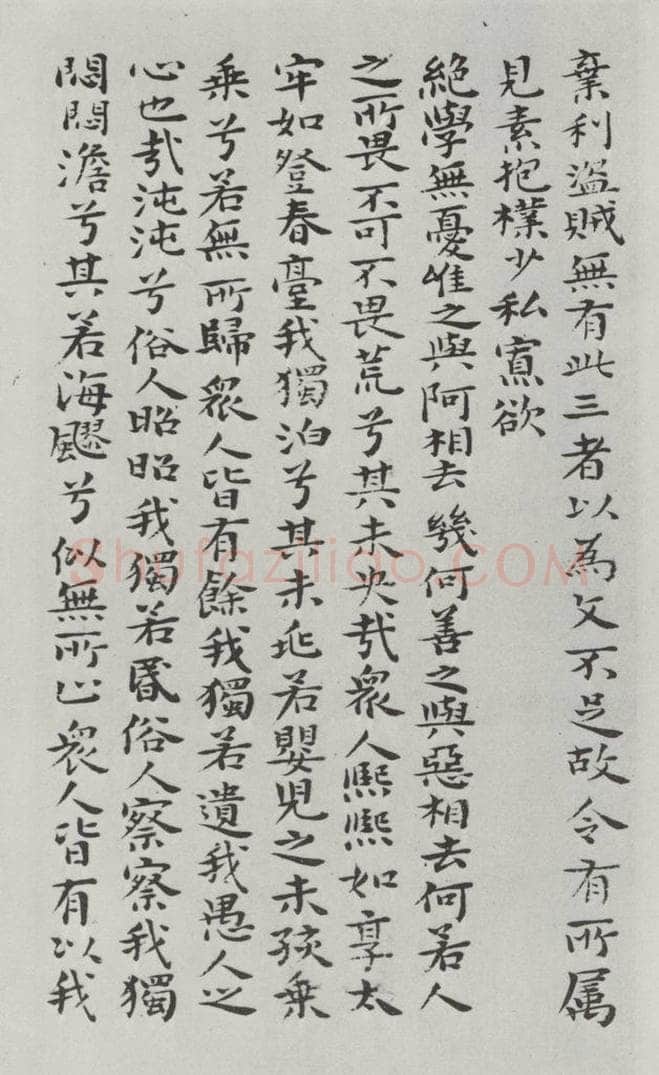 棄利盜賊無有此三者以為文不足故令有所属
見素抱樸少私寡欲
絶學無憂唯之與阿相去幾何善之與惡相去何若人
之所畏不可不畏荒兮其未央哉衆人熈熈如享太
牢如登春臺我獨泊兮其未兆若嬰兒之未孩乗
乗兮若無所歸衆人皆有餘我獨若遺我愚人之
心也哉沌沌兮俗人昭昭我獨若昏俗人察察我獨
悶悶澹兮其若海飂兮似無所止衆人皆有以我
Shufaziliao.COM